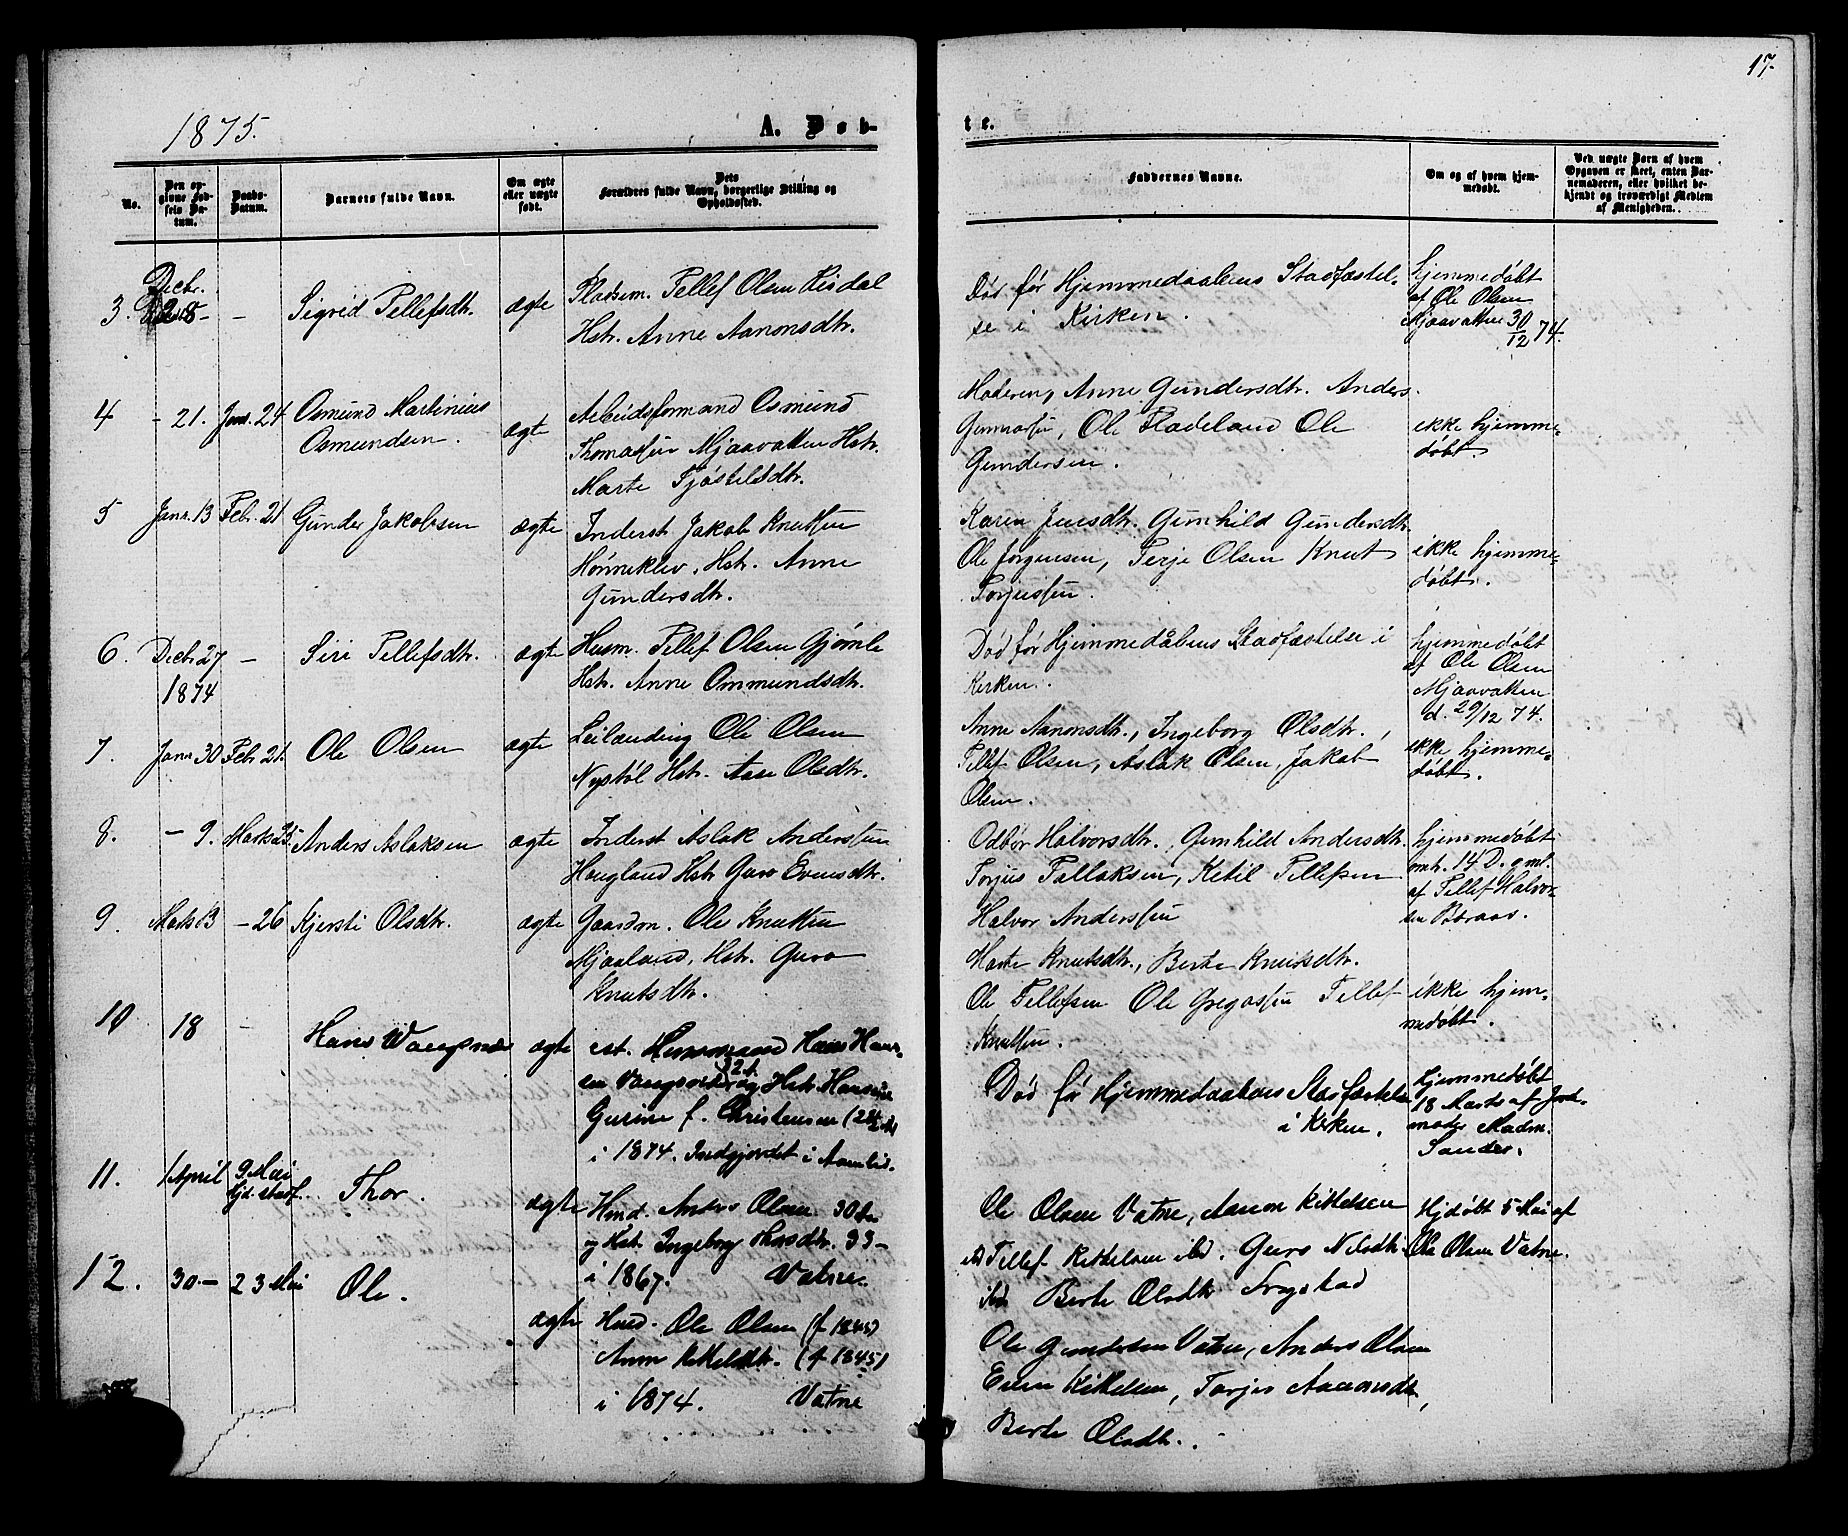 17.
1875.
A. Døb-
te.
No.
Den op-
givne Fød-
sels Da-
tum.
Daabs-
Datum.
Barnets fulde Navn.
Om ægte
eller uægte
født.
Dets
Forældres fulde Navn, borgerlige Stilling og
Opholdssted.
Faddernes Navne.
Om og af hvem hjem-
medøbt.
Ved uægte Børn af hvem
Opgaven er skeet, enten Bar-
nemoderen, eller hvilket be-
kjendt og troværdigt Medlem
af Menigheden.
3. Decbr. 28 - - Sigrid Tellefsdtr. ægte
Pladsm. Tellef Olsen Risdal
Hstr. Anne Aanonsdtr.
Død før Hjemmedaabens Stadfæstel-
se i Kirken.
hjemmedøbt
af Ole Olsen
Mjaavatten 30/12 74.
4 - 21. Jan. 24 Osmund Martinius
Osmundsen. ægte
Arbeidsformand Osmund
Thomassen Mjaavatten Hstr.
Marte Tjøstelsdtr.
Moderen, Anne Gundersdtr. Anders
Gunnarsen, Ole Fladeland Ole
Gundersen.
ikke hjemme-
døbt.
5 Janr. 13 Febr. 21 Gunder Jakobsen ægte
Inderst Jakob Knutsen
Hønneklev, Hstr. Anne
Gundersdtr.
Karen Jensdtr. Gunhild Gundersdtr
Ole Jørgensen, Terje Olsen Knut
Torjussen.
ikke hjemme-
døbt.
6. Decbr 27
1874 - Siri Tellefsdtr. ægte
Husm. Tellef Olsen Gjømle
Hstr. Anne Ommundsdtr.
Død før Hjemmedåbens Stadfæstelse i
Kirken.
hjemmedøbt
af Ole Olsen
Mjaavatten
d. 29/12 74.
7. Janr 30 Febr 21. Ole Olsen ægte
Leilænding Ole Olsen
Nystøl Hstr. Aase Olsdtr.
Anne Aanonsdtr., Ingeborg Olsdtr.,
Tellef Olsen, Aslak Olsen, Jakob
Olsen.
ikke hjemme-
døbt.
8. - 9. Marts Anders Aslaksen ægte
Inderst Aslak Anderssen
Hougland Hstr Guro Evensdtr.
Odbør Halvorsdtr., Gunhild Andersdtr.
Torjus Tallaksen, Ketil Tellefsen
Halvor Anderssen
hjemmedøbt
omtr. 14 D. gml.
af Tellef Halvor-
sen
9. Marts 13 - 26 Kjersti Olsdtr. ægte
Gaardm. Ole Knutsen
Mjaaland, Hstr. Guro
Knutsdtr.
Marte Knutsdtr., Berte Knutsdtr.
Ole Tellefsen Ole Gregassen Tellef
Knutsen.
ikke hjem-
medøbt.
10 18 - Hans Vangsnes ægte
Hans Han-
sen 32 og Hstr. Hansine
Gurine f. Christensen
i 1874. Indgjordet i Aamlid.
Død før Hjemmedaabens Stadfæstelse
i Kirken.
Hjemmedøbt
18 Marts af Jord-
moder Madm.
Sander.
11. 1 April 9 Mai
hjd. stadf. Thor. ægte
Husd. Anders Olsen 30 Aar
og Hstr. Ingeborg Thorsdtr. 33 -
i 1867. Vatne.
Ole Olsen Vatne, Aanon Kittelsen
Tellef Kittelsen ibd. Guro Nilsdtr.
ibd Berte Olsdtr
Hjdøbt 5 Mai af
Ole Olsen Vatne.
12. 30 - 23 Mai Ole. ægte
Husd. Ole Olsen (f 1845)
Anne Kittelsdtr. (f 1845)
i 1874. Vatne
Ole Gundersen Vatne, Anders Olsen
Even Kittelsen, Torjer Aanonsdtr,
Berte Olsdtr.